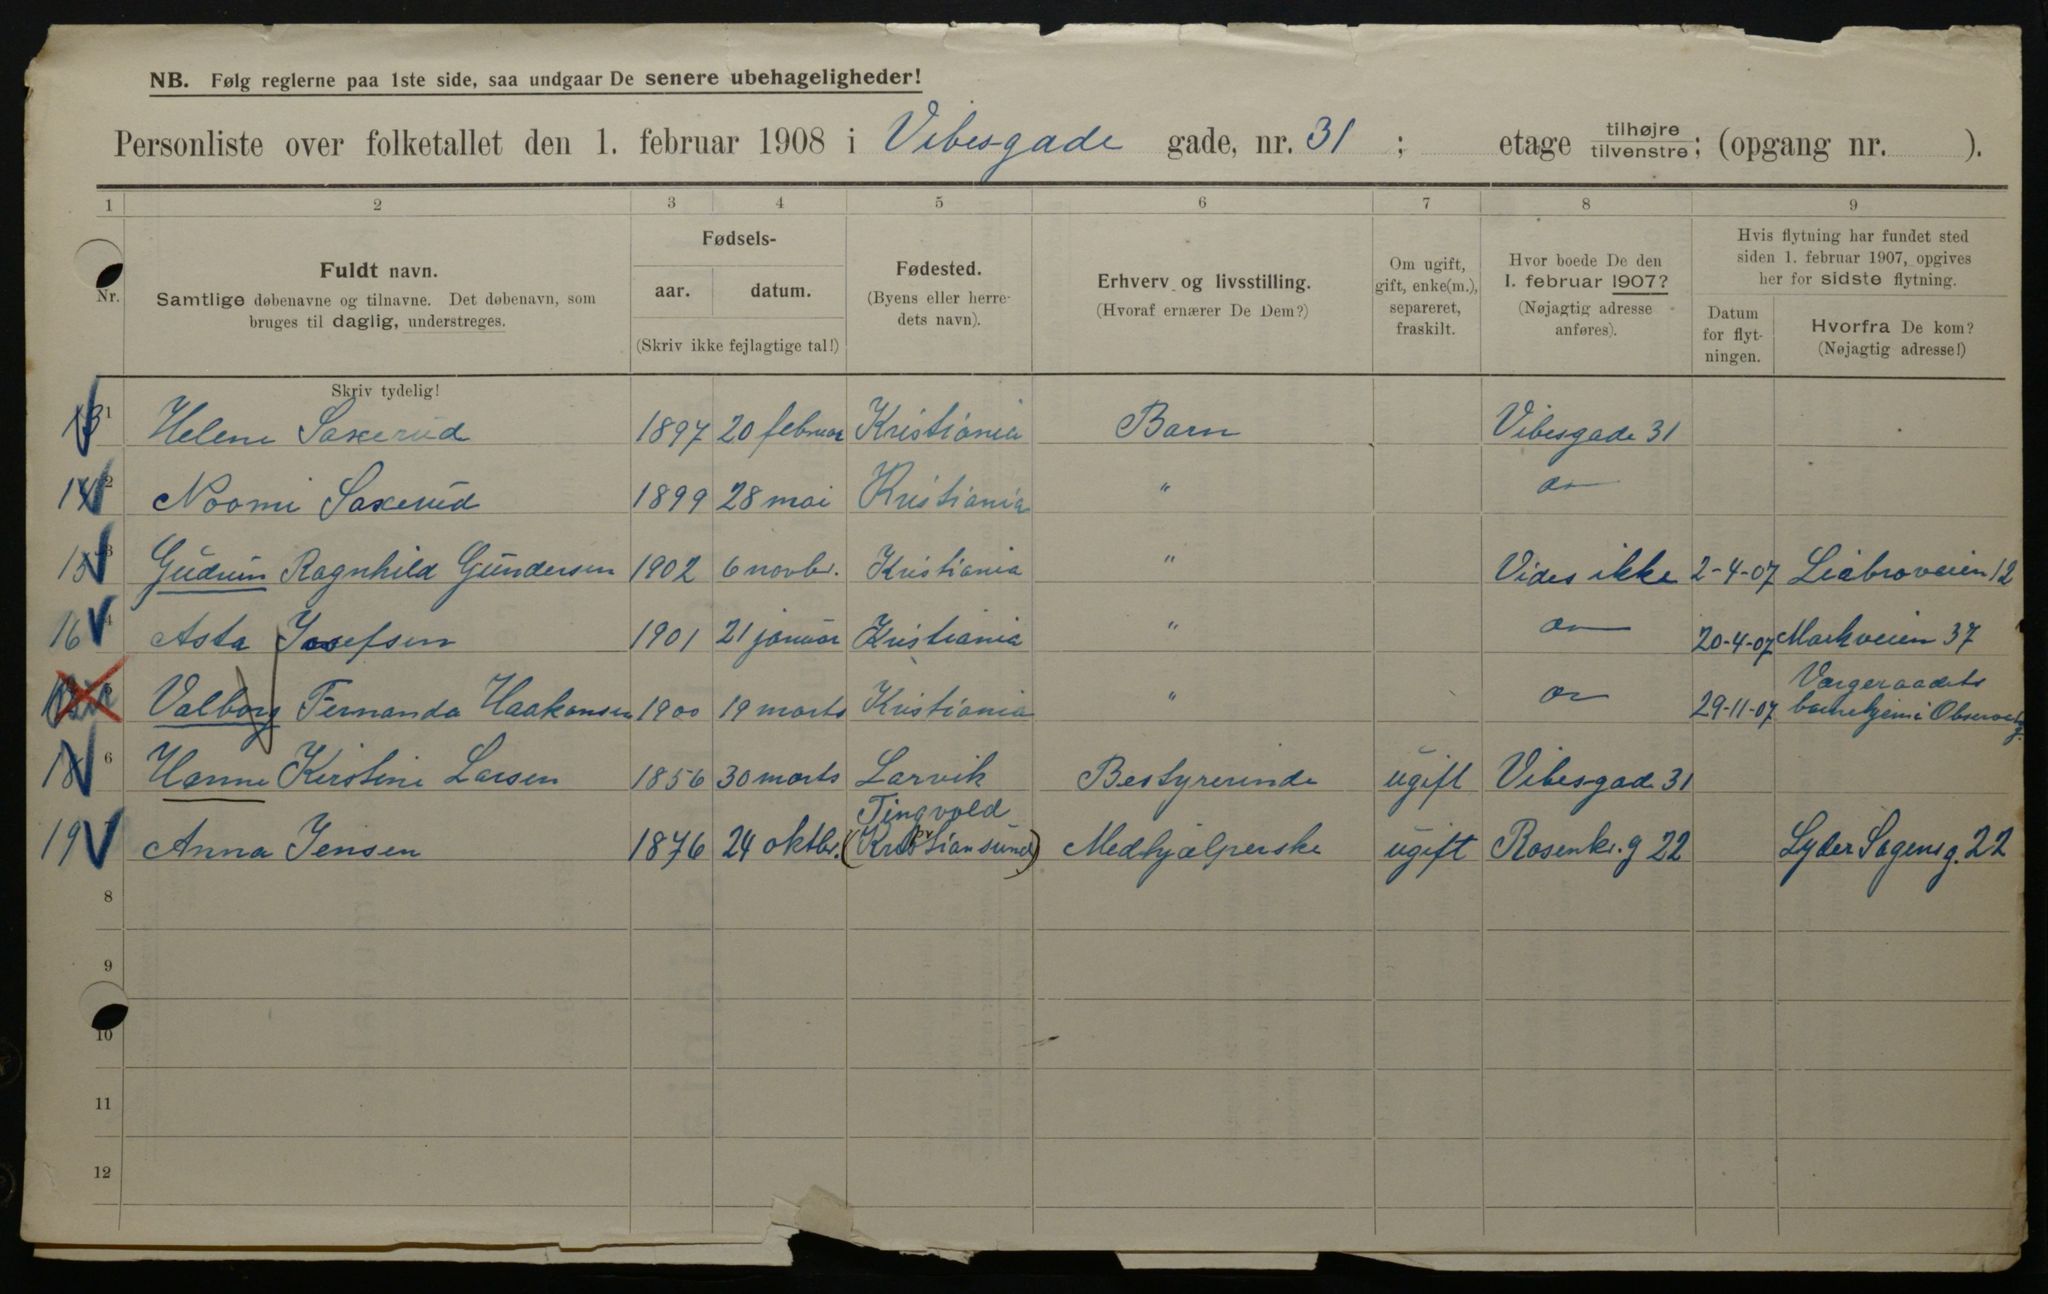 NB. Følg reglerne paa 1ste side, saa undgaar De senere ubehageligheder!
Personliste over folketallet den 1. februar 1908 i Vibesgade gade, nr. 31 ; etage tilhøjre tilvenstre; (opgang nr. ).
1 2 3 4 5 6 7 8 9
Nr.
Fuldt navn.
Samtlige døbenavne og tilnavne. Det døbenavn, som
bruges til daglig, understreges.
Skriv tydelig!
Fødsels-
aar. datum.
(Skriv ikke fejlagtige tal!)
Fødested.
(Byens eller herre-
dets navn).
Erhverv og livsstilling.
(Hvoraf ernærer De Dem?)
Om ugift,
gift, enke(m.),
separeret,
fraskilt.
Hvor boede De den
1. februar 1907?
(Nøjagtig adresse
anføres).
Hvis flytning har fundet sted
siden 1. februar 1907, opgives
her for sidste flytning.
Datum
for flyt-
ningen.
Hvorfra De kom?
(Nøjagtig adresse!)
13 1 Helene Saxerud 1897 20 februar Kristiania Barn Vibesgade 31
14 2 Noomi Saxerud 1899 28 mai Kristiania " do
15 3 Gudrun Ragnhild Gundersen 1902 6 novbr. Kristiania " Vides ikke 2-4-07 Liabroveien 12
16 4 Asta Josefsen 1901 21 januar Kristiania " do 20-4-07 Markveien 37
5 Valborg Fernanda Haakonsen 1900 19 marts Kristiania " do 29-11-07 Vergeraadets
barnehjem i Observat.g.
18 6 Hanne Kirstine Larsen 1856 30 marts Larvik Bestyrerinde ugift Vibesgade 31
Tingvold
19 Anna Jensen 1876 24 oktbr. (Kristiansund) Medhjælperske ugift Rosenkr.g 22 Lyder Sagensg. 22
8
9
10
11
12